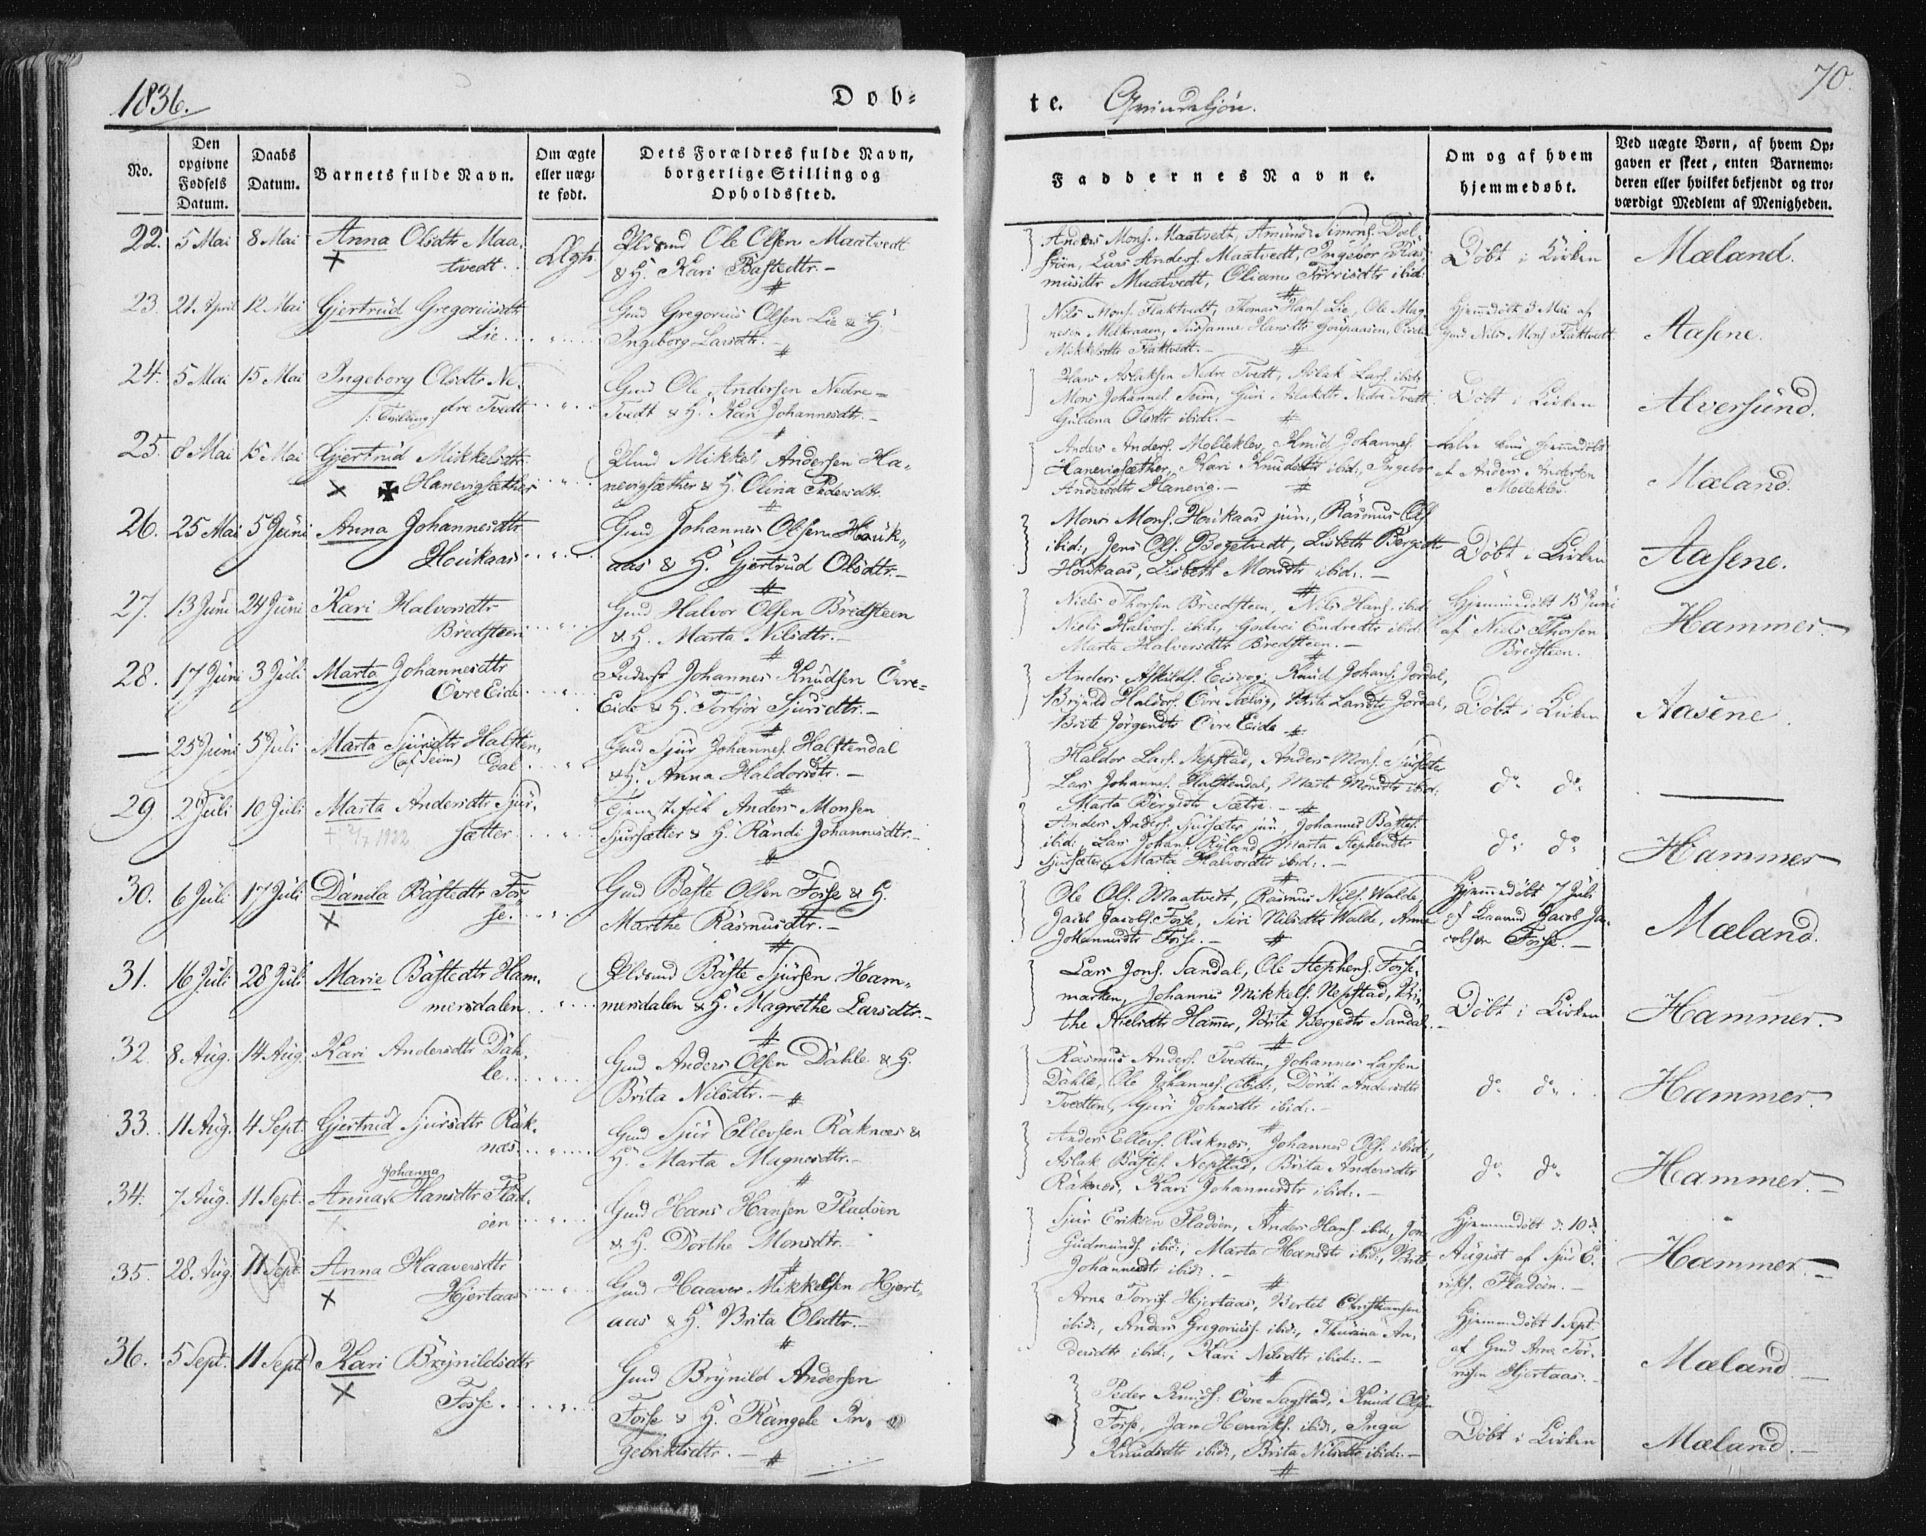 1836.
Døb-
te. Qvindekjøn.
70.
No.
Den opgivne Fødsels Datum.
Daabs Datum.
Barnets fulde Navn.
Om ægte eller uægte født.
Dets Forældres fulde Navn, borgerlige Stilling og Opholdssted.
Faddernes Navne.
Om og af hvem hjemmedøbt.
Ved uægte Børn, af hvem Opgaven er skeet, enten Barnemoderen eller hvilket bekjendt og troværdigt Medlem af Menigheden.
22. 5 Mai 8 Mai Anna Olsdtr Maa-
tvedt. Ole Olsen Maatvedt
& H. Kari Bastedtr.
Anders Mons. Maatvedt,
Lars Anders. Maatvedt, Ingebor
Maatvedt, ibid:
Døbt i Kirken
Mæland.
23. 21 April 12 Mai Gjertrud Gregoriisdtr
Lie
Gmd Gregorius Olsen Lie & H.
Ingeborg Larsdtr.
Nils Mons. Flaktvedt, Thomas Hans. Lie, Ole Mag-
nesen
Mikkelsdtr Flaktvedt.
Hjemmedøbt 3 Mai af
Gmd Nils Mons. Flaktvedt
Aasene.
24. 5 Mai 15 Mai Ingeborg Olsdtr Ne-
dre Tvedt
/: Tvilling
Gmd Ole Andersen Nedre-
Tvedt & H. Kari Johannesdtr.
Hans Aslaksen Nedre Tvedt, Aslak Lars. ibid:
Mons Johannes. Seim, Guri Aslaksdtr Nedre Tvedt
Olsdtr ibid:
Døbt i Kirken
Alversund.
25. 8 Mai 15 Mai Gjertrud Mikkelsdtr
Hanevigsæther
Mikkel Andersen Ha-
nevigsæther & H. Olina Pedersdtr.
Anders Anders. Molleklev, Knud Johannes.
Hanevigsæther, Kari Knudsdtr ibid:, Ingebor
Andersdtr Hanevig.
af Anders Andersen
Mæland.
26. 25 Mai 5 Juni Anna Johannesdtr
Houkaas
Gmd Johannes Olsen Houk-
aas & H. Gjertrud Olsdtr.
Mons Mons. Houkaas jun., Rasmus Ols.
ibid:, Jens Ols. Bogetvedt, Lisbeth
Houkaas, Lisbeth Monsdtr ibid:.
Døbt i Kirken
Aasene.
27. 13 Juni 24 Juni Kari Halvorsdtr
Bredsteen
Gmd Halvor Olsen Bredsteen
& H. Marta Nilsdtr.
Niels Thorsen Breedsteen, Nils Hans. ibid:
Niels Halvors. ibid:, Endredtr ibid:
Marta Halvorsdtr Bredsteen.
Hjemmedøbt 13 Juni
af Niels Thorsen
Bredsteen.
Hammer.
28. 17 Juni 3 Juli Marta Johannesdtr
Övre Eide
Johannes Knudsen Övre-
Eide & H. Torbjör Sjursdtr.
Anders Askilds. Eisvog, Knud Johans. Jordal,
Haldors. Övre Brite Larsdtr Jordal,
Brite Jörgensdtr Övre Eide
Døbt i Kirken
Aasene.
— 25 Juni 5 Juli Marta Sjursdtr Halsten-
dal
(af Seim)
Gmd Sjur Johannes. Halstendal
& H. Anna Haldorsdtr.
Haldor Lars. Nepstad, Anders Mons.
Lars Johannes. Halstendal, Marta Monsdtr ibid:
Marta Sætre.
do do
29 2 Juli 10 Juli Marta Andersdtr Sjur-
sætter
Tjenestefolk Anders Monsen
Sjursætter & H. Randi Johannesdtr.
Anders Anders. Sjursæter jun, Johannes Bastes.
ibid:, Lars Johans. Ryland, Marta Stephensdtr
Sjursæter, Marta Halvorsdtr ibid:.
do do
Hammer
30. 6 Juli 17 Juli Danila Bastedtr Fos-
se.
Gmd Baste Olsen Fosse & H.
Marthe Rasmusdtr.
Ole Ols. Maatvedt, Rasmus Nils. Walde,
Jacob Jacobs. Fosse, Siri Nilsdtr Walde, Anna
Johannesdtr Fosse.
Hjemmedøbt 7 Juli
af Jacob Ja-
cobsen Fosse.
Mæland.
31. 16 Juli 28 Juli Marie Bastedtr Ham-
mersdalen
Baste Sjursen Ham-
mersdalen & H. Magrethe Larsdtr.
Lars Jons. Sandal, Ole Stephens. Fosse-
marken, Johannes Mikkels. Nepstad, Bri-
the Nielsdtr Hammer, Brite Bergedtr Sandal.
Døbt i Kirken
Hammer.
32. 8 Aug. 14 Aug. Kari Andersdtr Dah-
le.
Gmd Anders Olsen Dahle & H.
Brita Nilsdtr.
Rasmus Anders. Tvedten, Johannes Larsen
Dahle, Ole Johannes. ibid:, Dordi Andersdtr
Tvedten, Guri Johnsdtr ibid:.
do do
Hammer.
33. 11 Aug. 4 Sept. Gjertrud Sjursdtr Rak-
næs.
Gmd Sjur Ellevsen Raknæs &
H. Marta Magnesdtr.
Anders Ellevs. Raknæs, Johannes Ols. ibid:,
Aslak Bastes. Nepstad, Brita Andersdtr
Raknæs, Kari Johannesdtr ibid:.
do do
Hammer.
Johanna
34. 7 Aug. 11 Sept. Anna Hansdtr Flad-
öen
Gmd Hans Hansen Fladöen
& H. Dorthe Monsdtr.
Sjur Eriksen Fladöen, Anders Hans. ibid:, Jon
Gudmunds. ibid:, Marta Hansdtr ibid:, Brite
Johannesdtr ibid:.
Hjemmedøbt d: 10de
August af Sjur E-
riks. Fladöen.
Hammer.
35. 28 Aug. 11 Sept. Anna Haaversdtr
Hjertaas
Gmd Haaver Mikkelsen Hjert-
aas & H. Brita Olsdtr.
Arne Torris. Hjertaas, Bertel Christiansen
ibid:, Anders Gregoriuss. ibid:, An-
dersdtr ibid:, Kari Nilsdtr ibid:.
Hjemmedøbt 1 Sept.
af Gmd Arne Tor-
risen Hjertaas.
Mæland
36. 5 Sept. 11 Sept. Kari Brynildsdtr
Fosse.
Gmd Brynild Andersen
Fosse & H. Rangele In-
gebriktsdtr.
Peder Knuds. Övre Sagstad, Knud Olsen
Fosse, Jan Henriks. ibid:, Inga
Knudsdtr ibid:, Brita Nilsdtr ibid:.
Døbt i Kirken
Mæland.